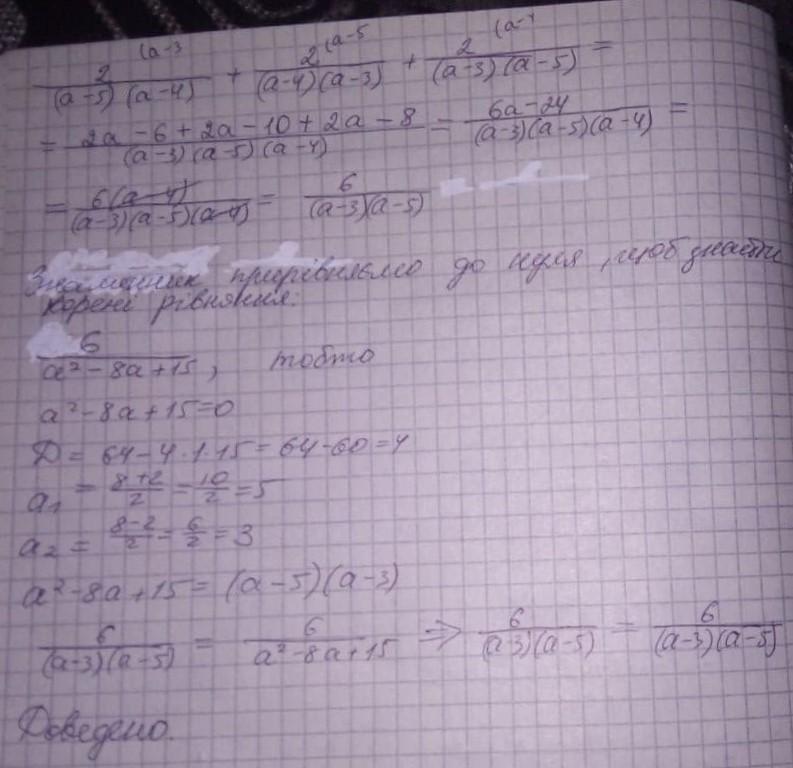 2 (a-3 / (a-5)(a-4) + 2 (a-5 / (a-4)(a-3) + 2 (a- / (a-3)(a-5) =
= 2a-6+2a-10+2a-8 / (a-3)(a-5)(a-4) = 6a-24 / (a-3)(a-5)(a-4) =
= 6(a-4) / (a-3)(a-5)(a-4) = 6 / (a-3)(a-5)
Знаменник прирівняємо до нуля, щоб знайти
корені рівняння:
6 / a²-8a+15, тобто
a²-8a+15=0
D = 64-4·1·15=64-60=4
a₁ = 8+2 / 2 = 10 / 2 = 5
a₂ = 8-2 / 2 = 6 / 2 = 3
a²-8a+15= (a-5)(a-3)
6 / (a-3)(a-5) = 6 / a²-8a+15 => 6 / (a-3)(a-5) = 6 / (a-3)(a-5)
Доведено.